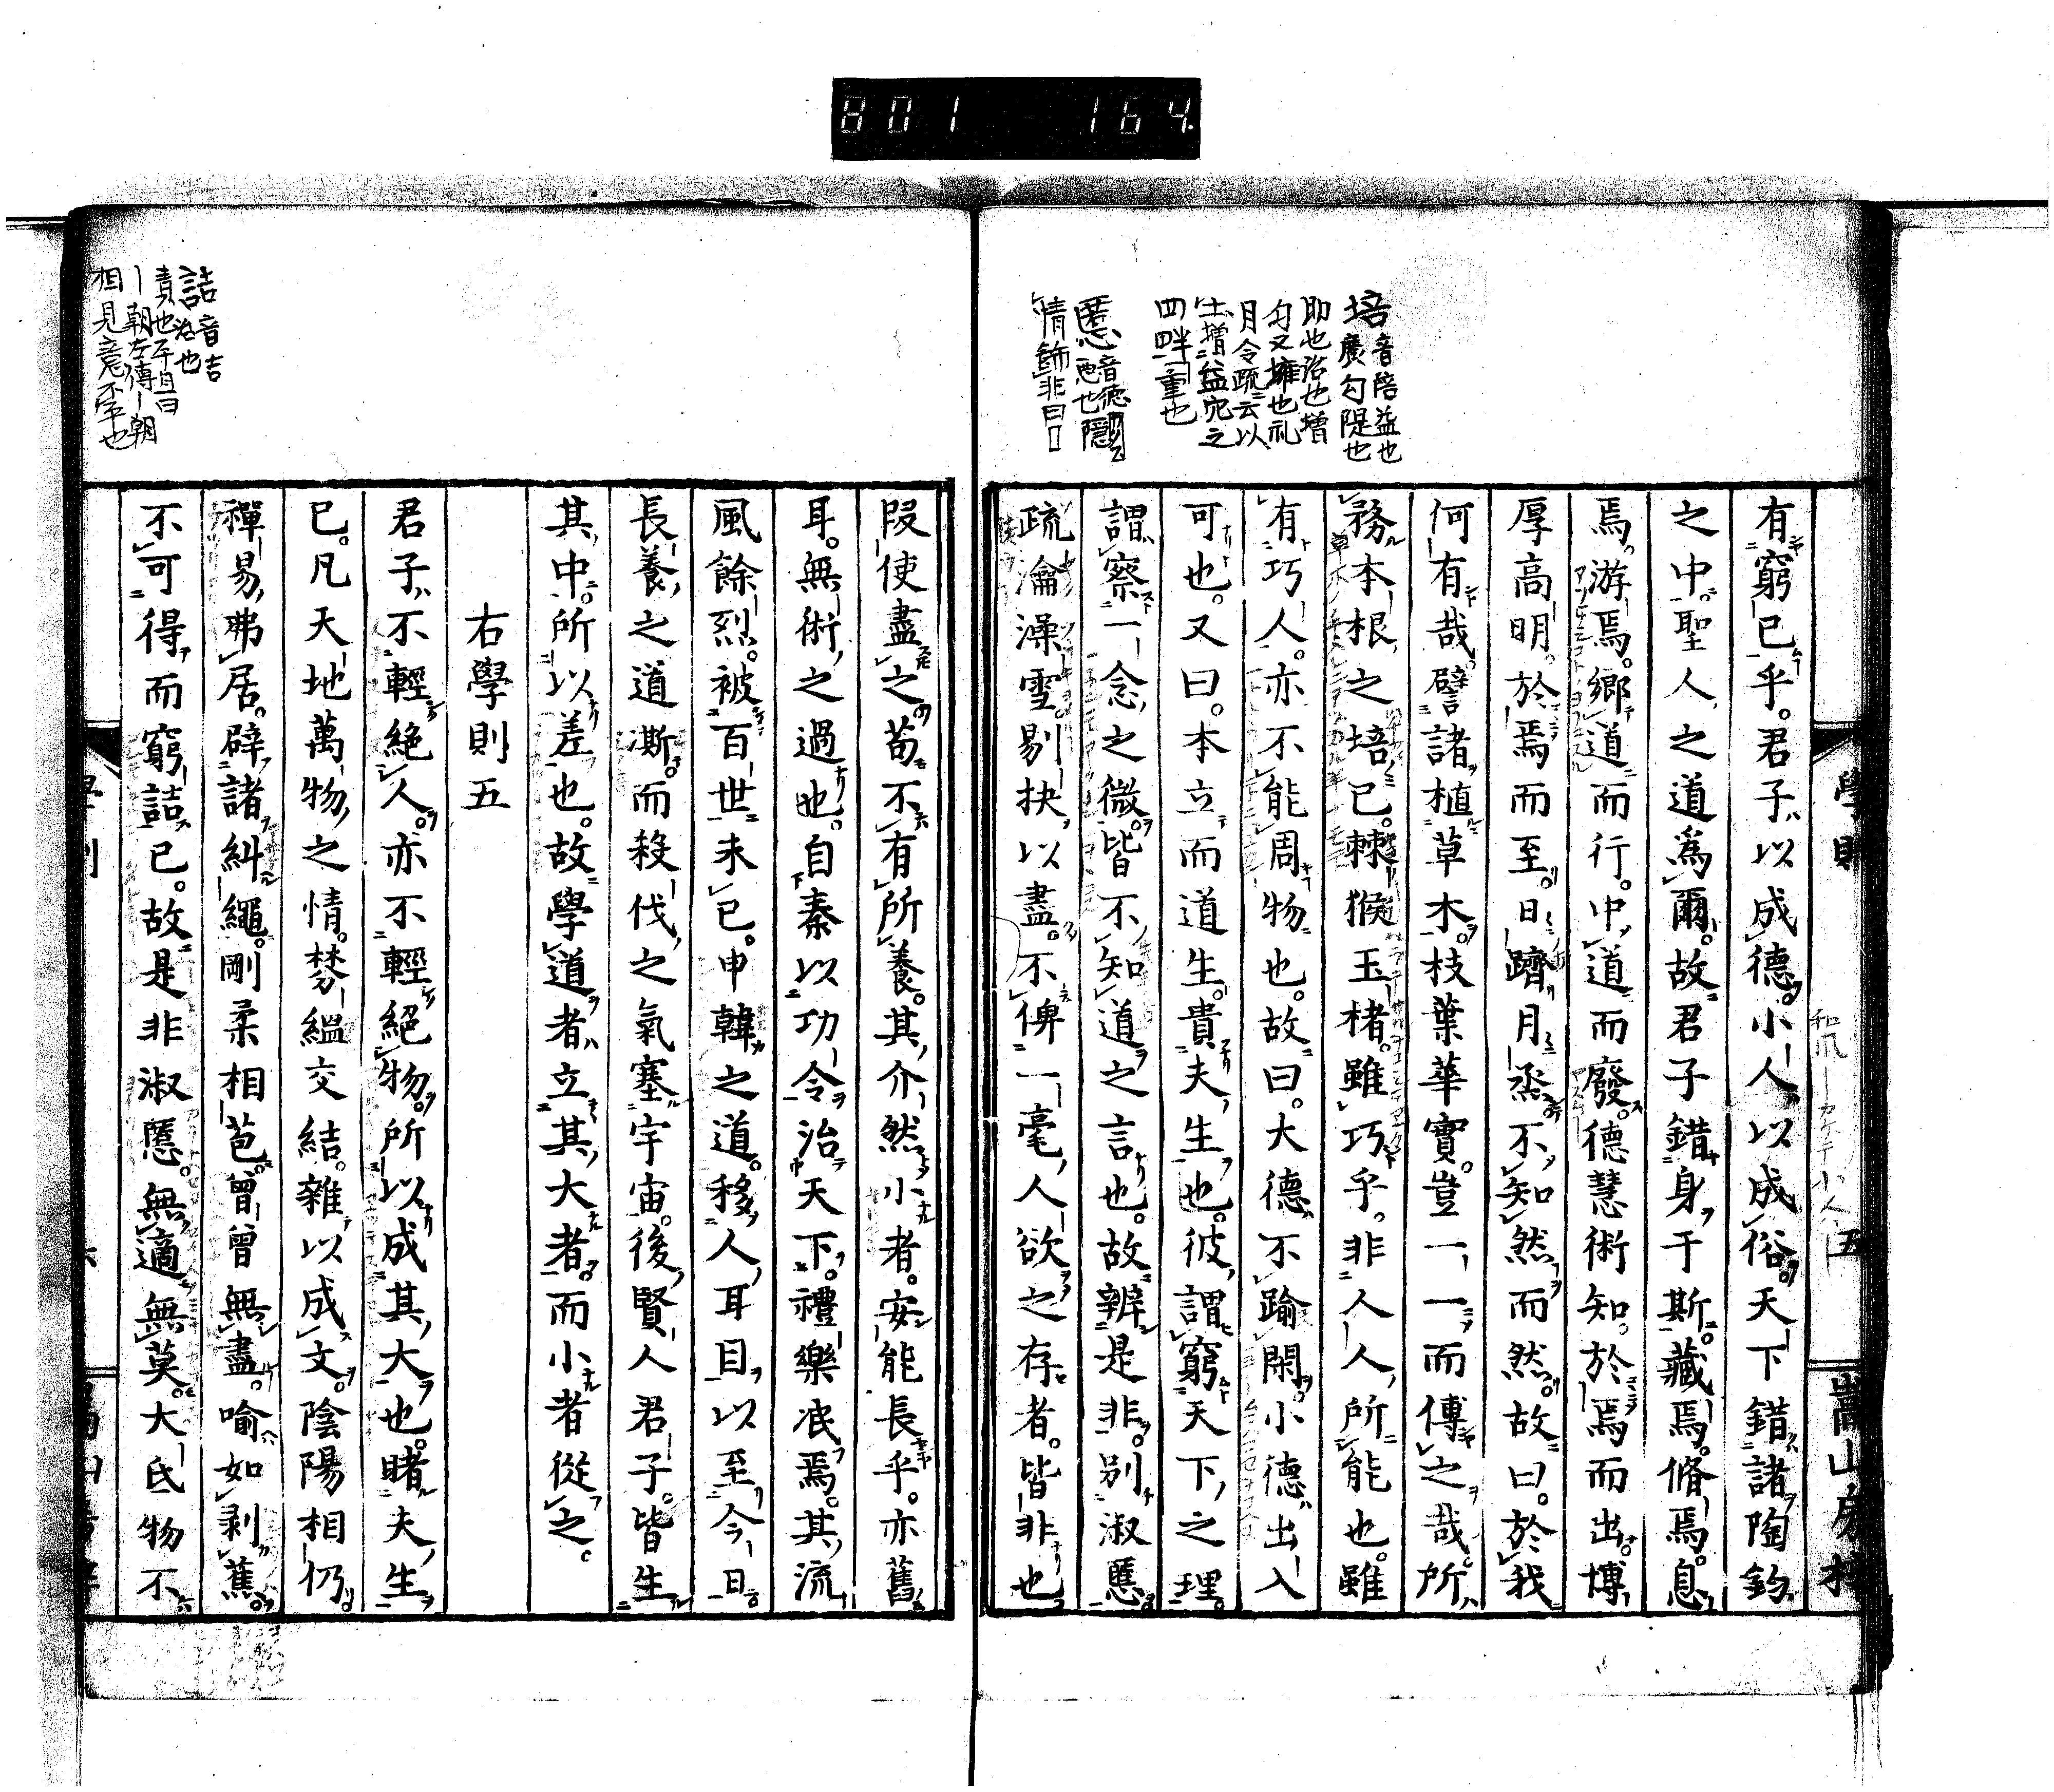 801 164
學則 五 嵩山房梓
培音陪益也
廣勾隄也
助也治也增
勾又擁也礼
月令疏云以
土增益宛之
四畔重也
慝音德
慝也隱
情飾非曰
有窮已乎。君子以成德。小人以成俗。天下錯諸陶鈞
之中。聖人之道爲爾。故君子錯身于斯。藏焉。脩焉。息
焉。游焉。鄉道而行。中道而廢。德慧術知。於焉而出。博
厚高明。於焉而至。日躋月烝。不知然而然。故曰。於我
何有哉。譬諸植草木。枝葉華實。豈一一而傳之哉。所
務本根之培已。棘猴玉楮。雖巧乎。非人人所能也。雖
有巧人。亦不能周物也。故曰。大德不踰閑。小德出入
可也。又曰。本立而道生。貴夫生也。彼謂窮天下之理。
謂察一念之微。皆不知道之言也。故辨是非。別淑慝
疏瀹澡雪。剔抉以盡。不俾一毫人欲之存者。皆非也
詰音吉
治也
責也平旦曰
｜朝左傳｜朝
相見意不字也
叚使盡之。苟不有所養。其介然小者。安能長乎。亦舊
耳。無術之過也。自秦以功令治天下。禮樂泯焉。其流
風餘烈。被百世未已。申韓之道。移人耳目。以至今日
長養之道澌。而殺伐之氣塞宇宙。後賢人君子。皆生
其中。所以差也。故學道者。立其大者。而小者從之。
右學則五
君子不輕絕人。亦不輕絕物。所以成其大也。睹夫生
已。凡天地萬物之情。棼縕交結。雜以成文。陰陽相仍
禪易弗居。辟諸糾繩。剛柔相苞。曾曾無盡。喻如剥蕉。
不可得而窮詰已。故是非淑慝。無適無莫。大氐物不